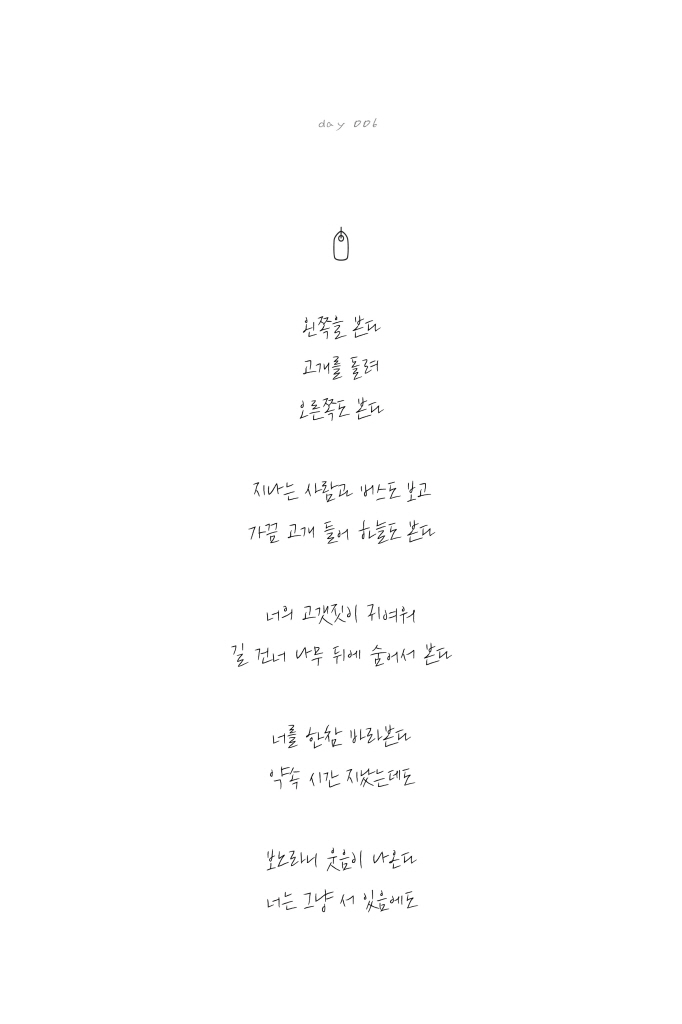 day 006
왼쪽을 본다
고개를 돌려
오른쪽도 본다
지나는 사람과 버스도 보고
가끔 고개 들어 하늘도 본다
너의 고갯짓이 귀여워
길 건너 나무 뒤에 숨어서 본다
너를 한참 바라본다
약속 시간 지났는데도
보노라니 웃음이 나온다
너는 그냥 서 있음에도